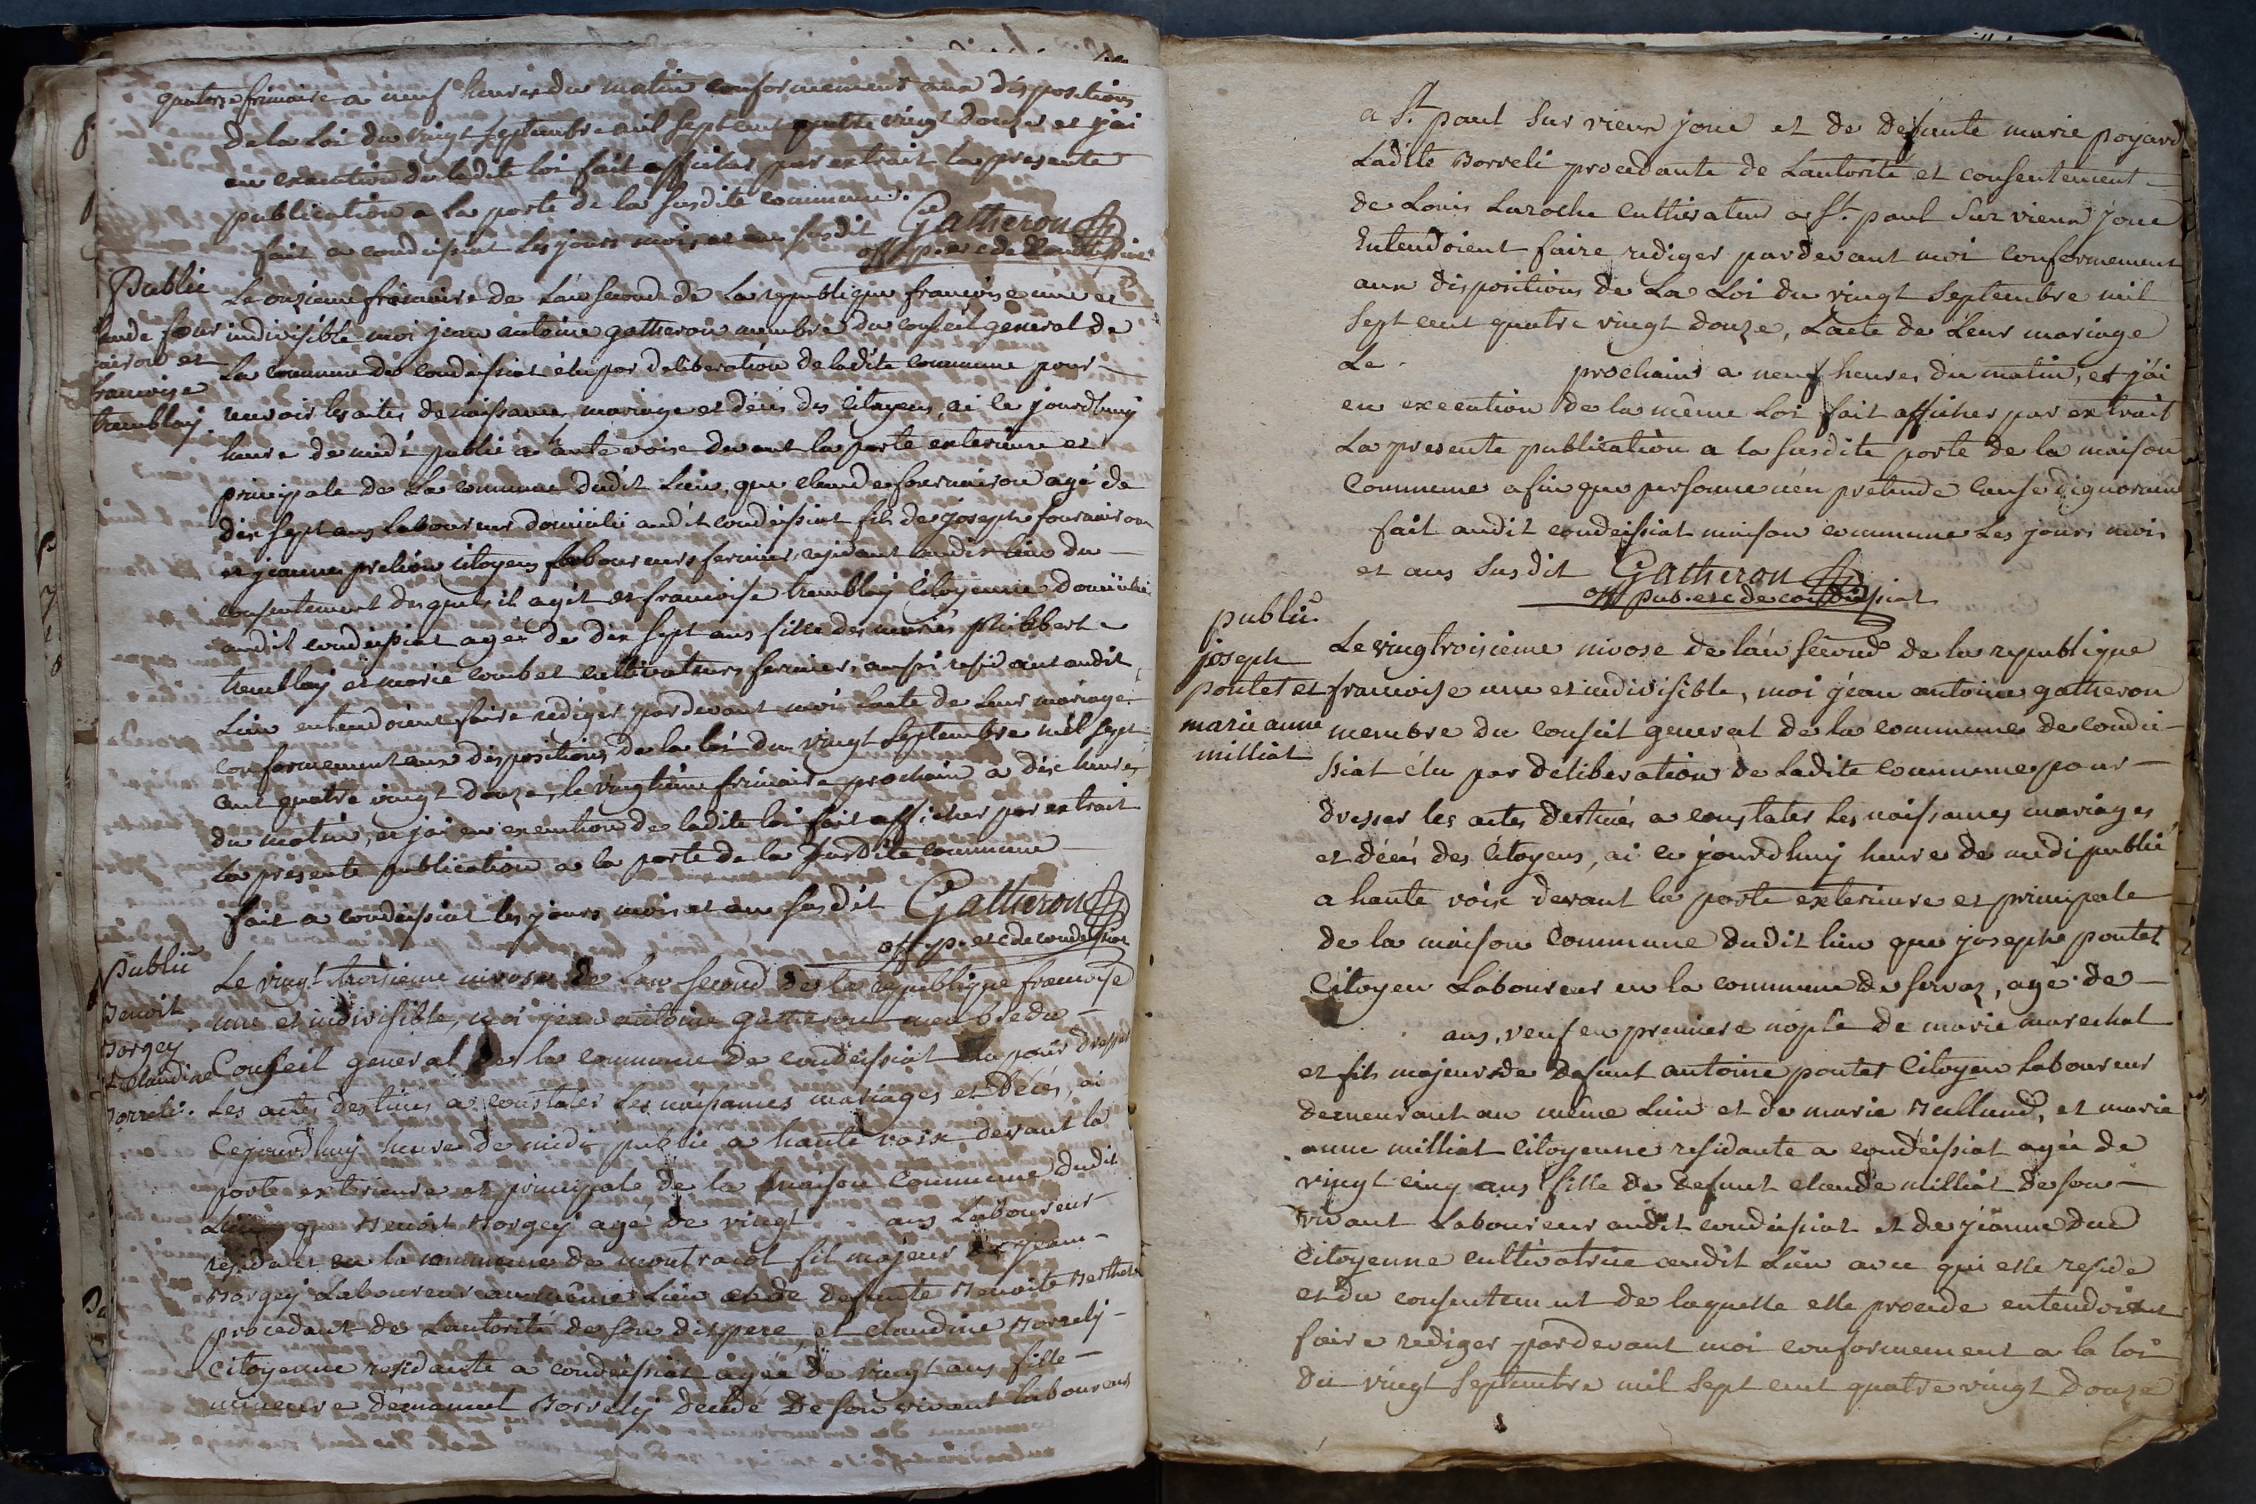 quatorze frimaire a neuf heures du matin conformement aux dispositions
de la Loi du vingt septembre mil sept cent quatre vingt douze et j'ai
en execution de ladite loi fait afficher par extrait la presente
publication a la porte de la susdite commune.
fait a condeissiat les jours mois et an susdit Gatheron
off. p. et c de Condeissiat
Public
claude four
naison et
francoise
tremblay
Le onzieme frimaire de L'an second de La republique françoise une et
indivisible moi jean antoine gatheron membre du conseil general de
La commune de condeissiat élu par deliberation de ladite commune pour
recevoir les actes de naissance, mariage et décès des citoyens, ai ce jourdhuy
heure de midi publié a haute voix devant la porte exterieure et
principale de La commune dudit Lieu, que claude fournaison agé de
dix sept ans Laboureur domicilié audit condeissiat fils de joseph fournaison
et jeanne prelion citoyens Laboureurs fermiers residant audit lieu du
consentement desquels il agit et francoise tremblay citoyenne domiciliée
audit condeissiat agée de dix sept ans fille des mariés philibert
tremblay et marie combet cultivateurs fermiers aussi residant audit
Lieu entendoient faire rediger pardevant moi l'acte de Leur mariage
conformement aux dispositions de la loi du vingt septembre mil sept
cent quatre vingt douze, le vingtieme frimaire prochain a dix heures
du matin, et j'ai en execution de ladite loi fait afficher par extrait
La presente publication a la porte de la susdite commune
fait a condeissiat les jours mois et an susdit Gatheron
off. p. et c de condeissiat
Public
Benoit
Borgey
et claudine
Borreli.
Le vingt troisieme nivose de L'an second de la republique francoise
une et indivisible, moi jean antoine gatheron membre du
Conseil general de la commune de condeissiat élu pour dresser
Les actes destinés a constater Les naissances mariages et Décès, ai
Cejourdhuy heure de midi publié a haute voix devant la
porte exterieure et principale de la maison Commune dudit
Lieu que Benoit Borgey agé de vingt ans Laboureur
residant en la commune de montracol fils majeur de jean
Borgey Laboureur au même Lieu et de defunte Benoite Berthet
procedant de L'autorité de son dit pere, et claudine Borrely
citoyenne residante a condeissiat agée de vingt ans fille
mineure d'émanuel Borrely decedé De son vivant Laboureur
a St. paul sur vieux joue et de defunte marie poyard
Ladite Borreli procedante de L'autorité et consentement
de Louis Laroche cultivateur a St. paul sur vieux joue
Entendoient faire rediger pardevant moi conformement
aux dispositions de La Loi du vingt septembre mil
sept cent quatre vingt douze, L'acte de Leur mariage
Le prochain a neuf heures du matin, et j'ai
en execution de la même Loi fait afficher par extrait
La presente publication a la susdite porte de la maison
Commune afin que personne n'en pretende cause d'ignorance
fait audit condeissiat maison commune Les jours mois
et ans susdit Gatheron
off pub. et c de condeissiat
public
joseph
pontet et
marie anne
milliat
Le vingtroisieme nivose de l'an second de la republique
francoise une et indivisible, moi jean antoine gatheron
membre du conseil general de la commune de condei-
ssiat élu par deliberation de Ladite Commune pour
dresser les actes destinés a constater Les naissances mariages
et décès des Citoyens, ai ce jourdhuy heure de midi publié
a haute voix devant la porte exterieure et principale
de la maison Commune dudit lieu que joseph pontet
Citoyen Laboureur en la commune de servas, agé de
ans, veuf en premiere nopse de marie marechal
et fils majeur de defunt antoine pontet Citoyen Laboureur
demeurant au même Lieu et de marie Bulland, et marie
anne milliat Citoyenne residante a condeissiat agée de
vingt cinq ans fille de defunt claude milliat de son
vivant Laboureur audit condeissiat et de jeanne duc
Citoyenne cultivatrice audit Lieu avec qui elle reside
et du consentement de laquelle elle procede entendoient
faire rediger pardevant moi conformement a la loi
du vingt septembre mil sept cent quatre vingt douze